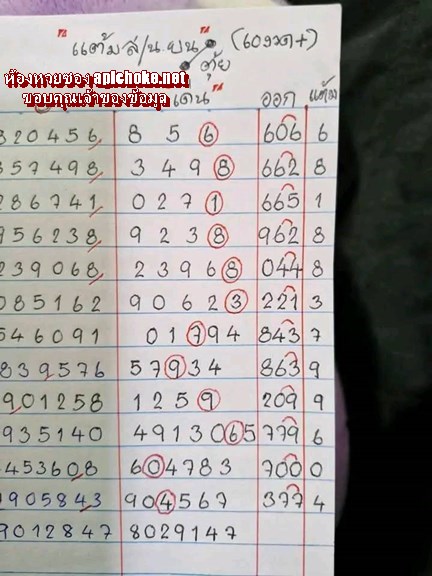 แต้ม ส/น.ยน. (เอางวด+)
ตุ้ย
ห้องหวยซอง apichoke.net
ขอบคุณเจ้าของข้อมูล
เด่น ออก แต้ม
320456 8 5 6 606 6
357498 3 4 9 8 662 8
286741 0 2 7 1 665 1
956238 9 2 3 8 962 8
239068 2 3 9 6 8 044 8
085162 9 0 6 2 3 221 3
546091 0 1 7 9 4 843 7
839576 5 7 9 3 4 863 9
901258 1 2 5 9 209 9
935140 4 9 1 3 0 6 5 779 6
453608 6 0 4 7 8 3 700 0
905843 9 0 4 5 6 7 377 4
9012847 8029147